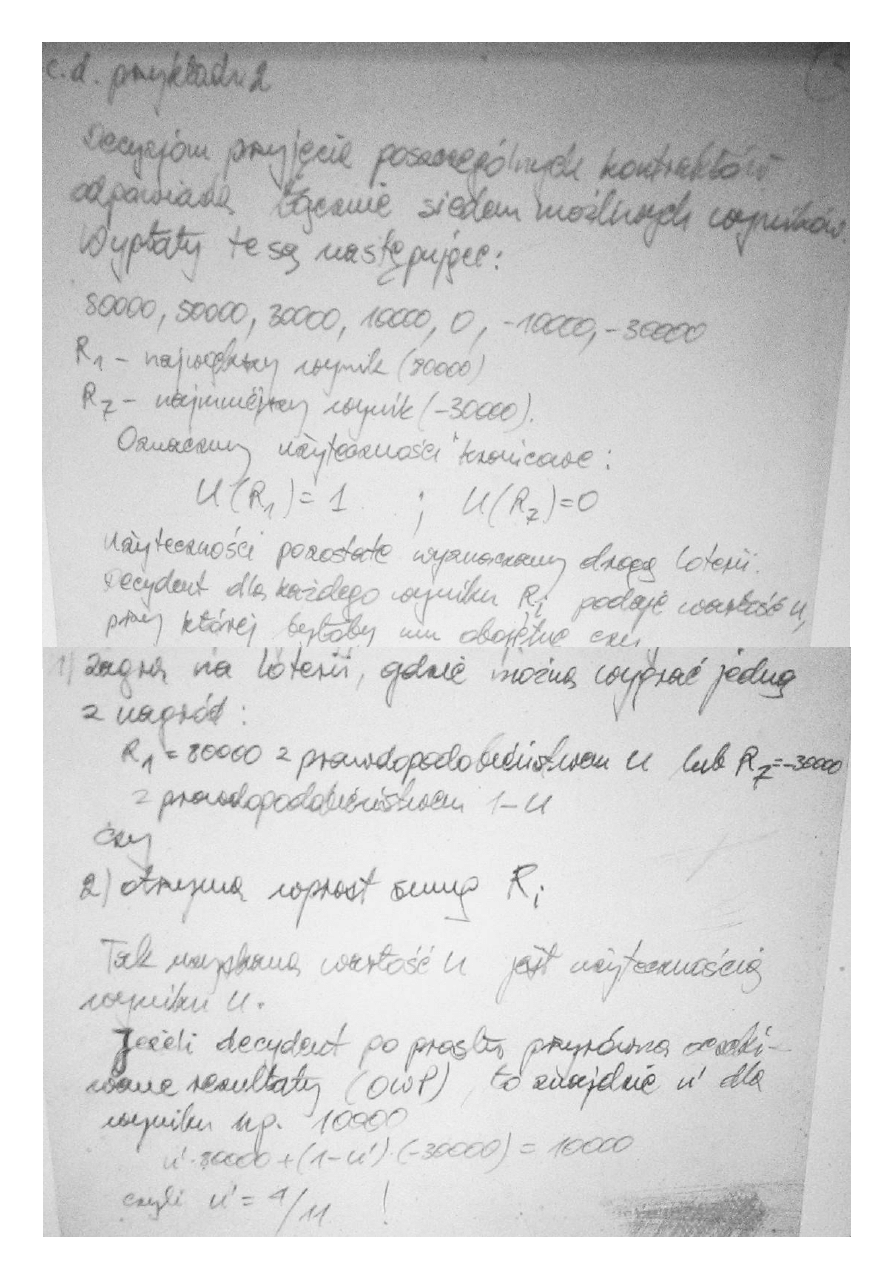 c.d. przykładu 2
Decyzjom przyjęcia poszczególnych kontraktów
odpowiada łącznie siedem możliwych wyników.
Wypłaty te są następujące:
80000, 50000, 30000, 10000, 0, -10000, -30000
R1 - największy wynik (80000)
R7 - najmniejszy wynik (-30000).
Oznaczamy użyteczności krańcowe:
U(R1) = 1 ; U(R7) = 0
Użyteczności pozostałe wyznaczamy drogą loterii.
Decydent dla każdego wyniku Ri podaje wartość u,
przy której byłoby mu obojętne czy
1) zagra na loterii, gdzie można wygrać jedną
z nagród:
R1 = 80000 z prawdopodobieństwem u lub R7=-30000
z prawdopodobieństwem 1-u
czy
2) otrzyma wprost sumę Ri
Tak uzyskana wartość u jest użytecznością
wyniku u.
Jeżeli decydent po prostu przyrówna oczeki-
wane rezultaty (OWP), to znajdzie u' dla
wyniku np. 10000
u'·80000+(1-u')·(-30000) = 10000
czyli u' = 4/11 !